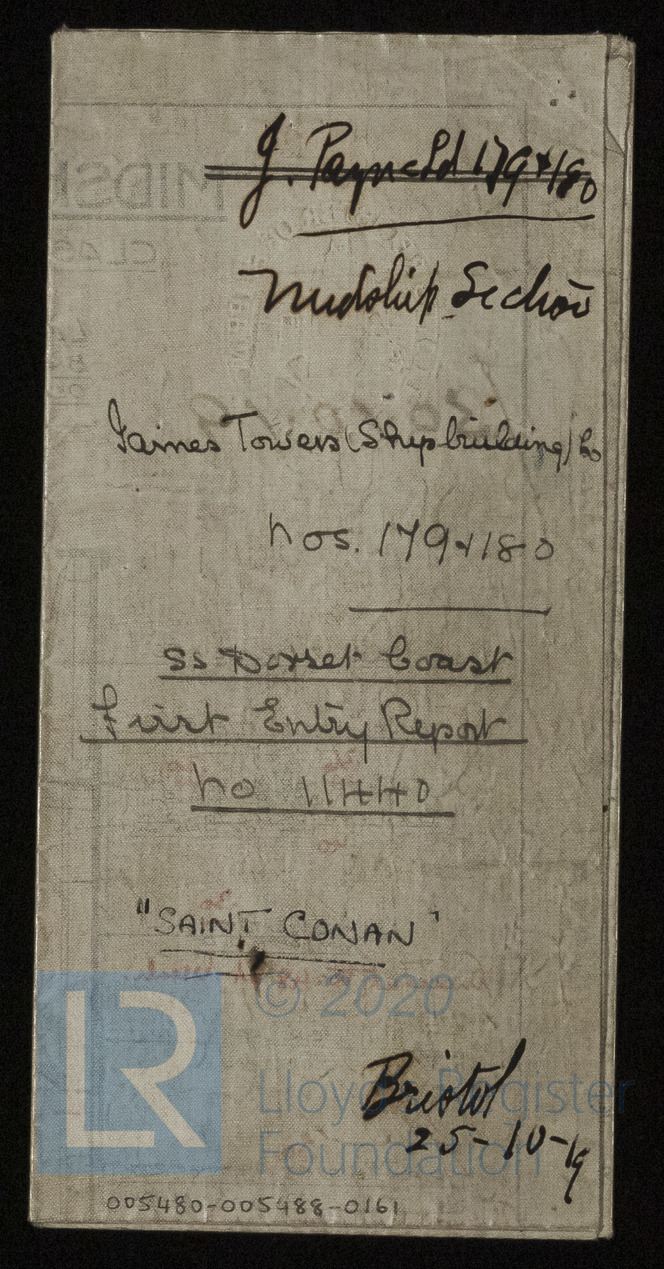 J. Payne Ld 179 & 180
Midship Section
James Towers (Shipbuilding) Co
Nos. 179 & 180
SS Dorset Coast
First Entry Report
No 11440
"SAINT CONAN"
LR
© 2020
Lloyd's Register
Foundation
Bristol
25-10-19
005480-005488-0161